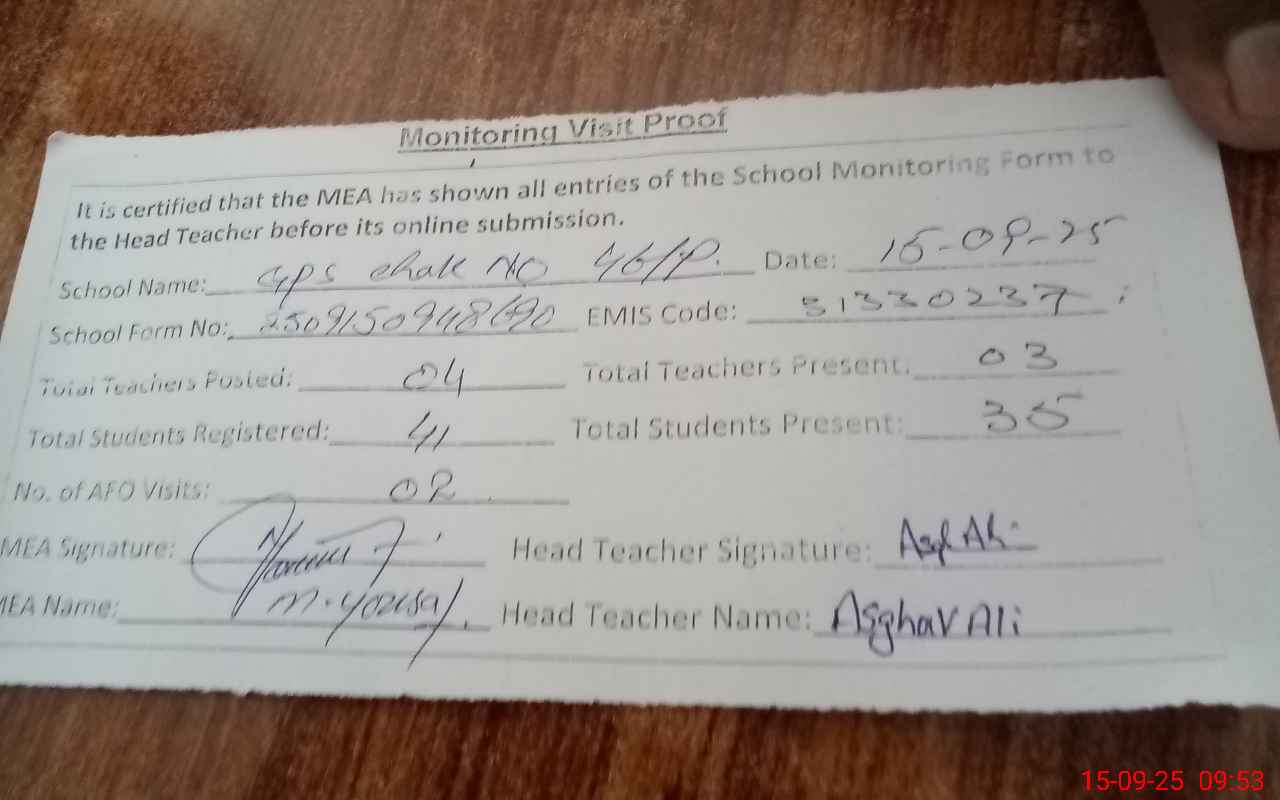 Monitoring Visit Proof
It is certified that the MEA has shown all entries of the School Monitoring Form to
the Head Teacher before its online submission.
School Name: GPS chak NO 46/P. Date: 15-09-25
School Form No: 2509150948690 EMIS Code: 31330237
Total Teachers Posted: 04 Total Teachers Present: 03
Total Students Registered: 41 Total Students Present: 35
No. of AFO Visits: 02
MEA Signature: Head Teacher Signature: Asg Ali
MEA Name: M. Yousaf. Head Teacher Name: Asghar Ali
15-09-25 09:53